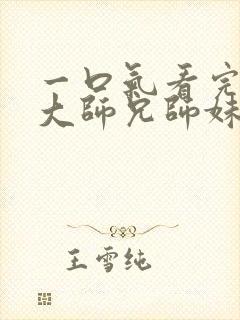 一口氣看完
大師兄師妹
王雪纯